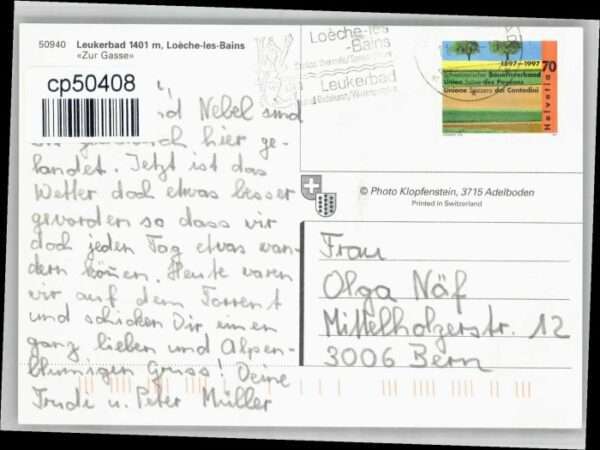 50940 Leukerbad 1401 m, Loèche-les-Bains
«Zur Gasse»
cp50408
Nebel sind
hier ge-
landet. Jetzt ist das
Wetter doch etwas besser
geworden so dass wir
doch jeden Tag etwas wan-
dern können. Heute waren
wir auf dem Torrent
und schicken Dir einen
ganz lieben und Alpen-
blumigen Gruss! Deine
Trudi u. Peter Müller
Loèche-les
-Bains
Leukerbad
1897-1997
70
Schweizerischer Bauernverband
Union Suisse des Paysans
Unione Svizzera dei Contadini
Helvetia
© Photo Klopfenstein, 3715 Adelboden
Printed in Switzerland
Frau
Olga Näf
Mittelholzerstr. 12
3006 Bern